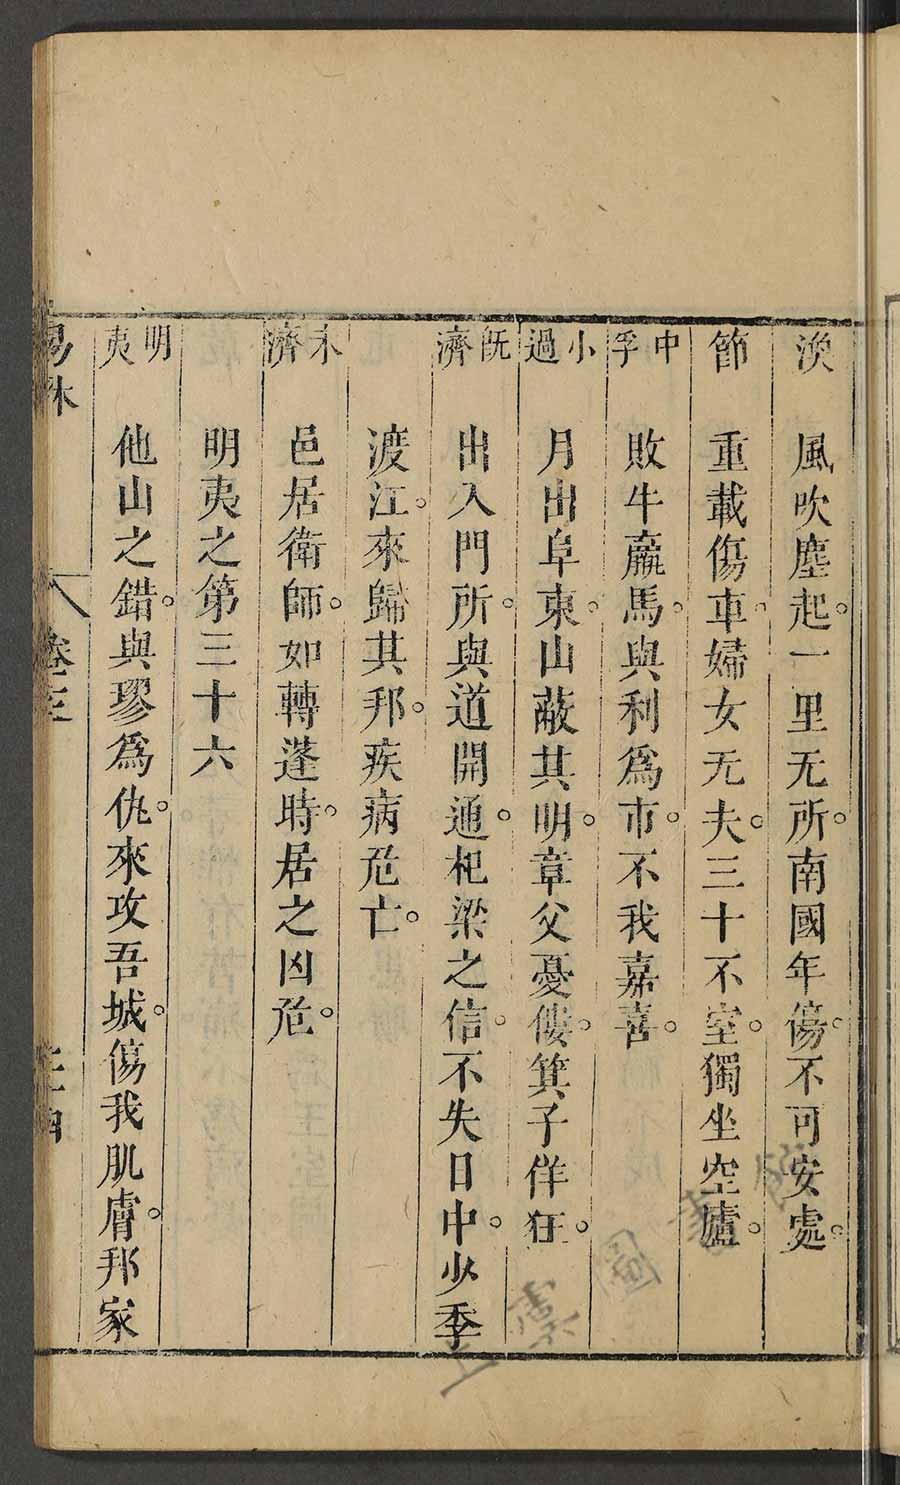 渙　風吹塵起。一里无所。南國年傷。不可安處。
節　重載傷車。婦女无夫。三十不室。獨坐空廬。
中孚　敗牛羸馬。與利爲市。不我嘉喜。
小過　月出阜東。山蔽其明。章父憂僂。箕子佯狂。
既濟　出入門所。與道開通。杞梁之信。不失日中。少季
渡江。來歸其邦。疾病危亡。
未濟　邑居衛師。如轉蓬時。居之凶危。
明夷之第三十六
明夷　他山之錯。與璆爲仇。來攻吾城。傷我肌膚。邦家
易林　卷三